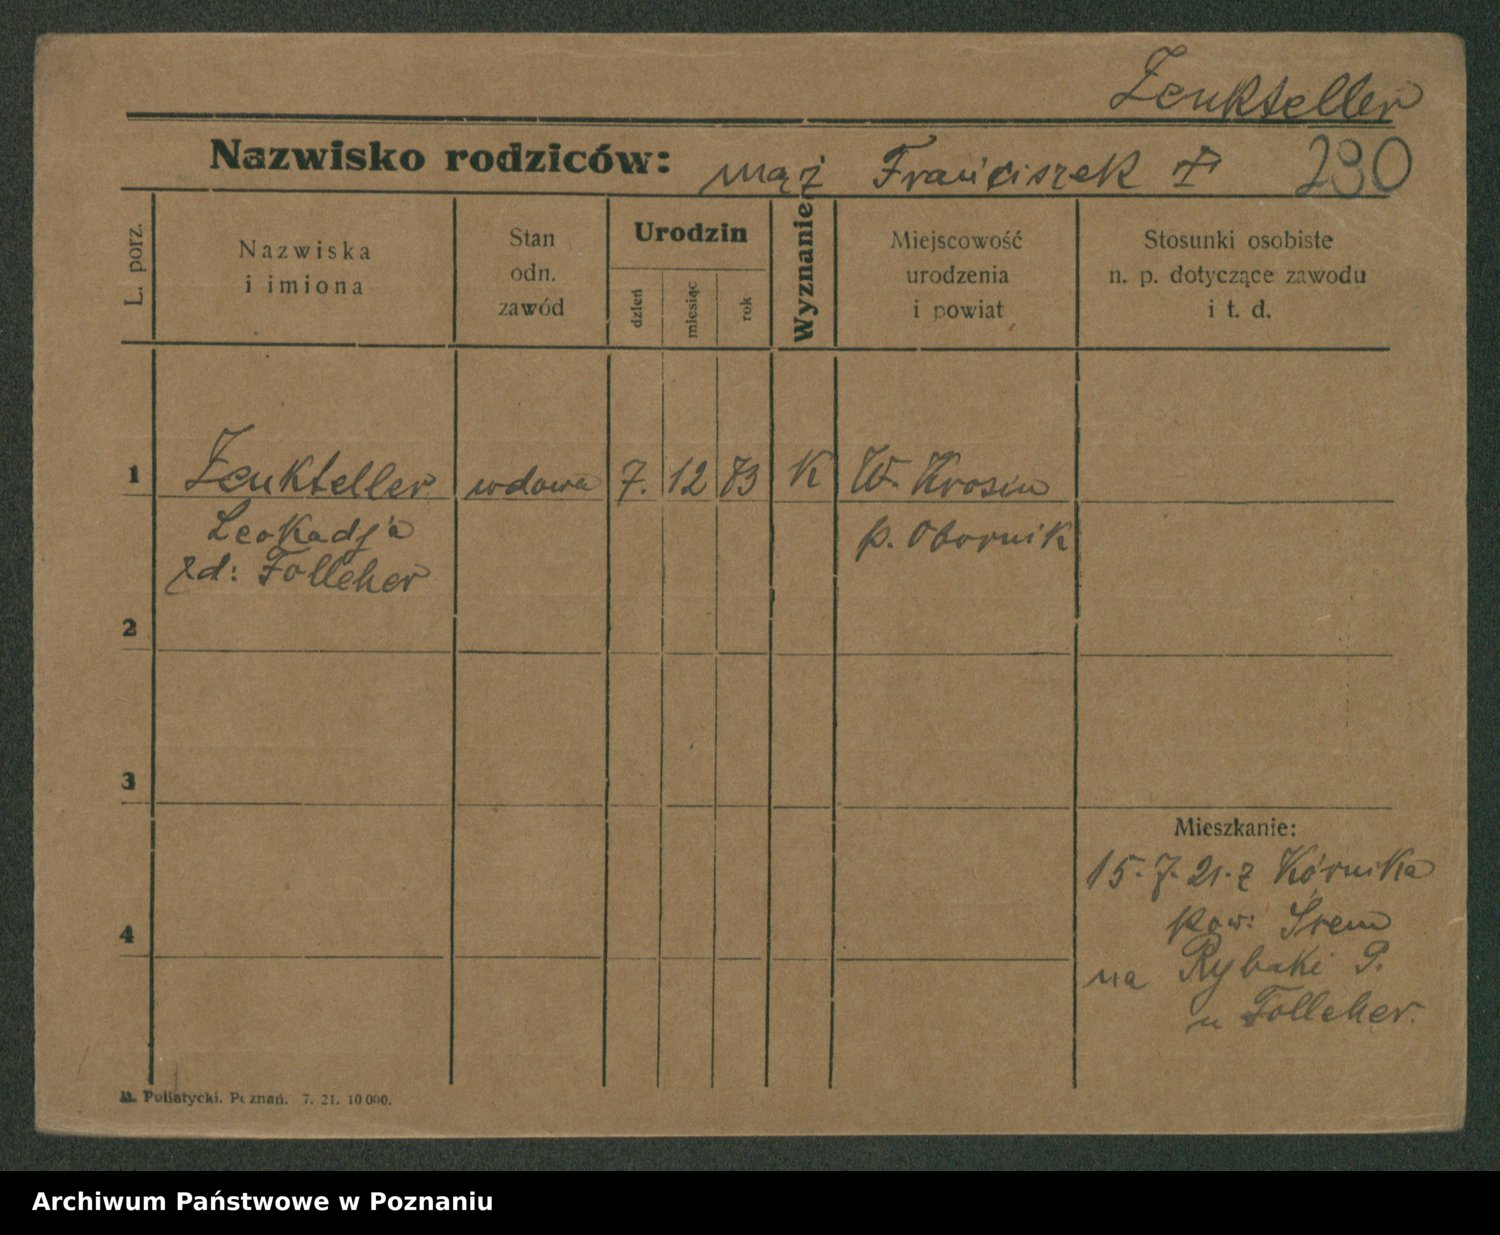 Zenkteller
Nazwisko rodziców: mąż Franciszek ✝ 290
L. porz.
Nazwiska
i imiona
Stan
odn.
zawód
Urodzin
dzień
miesiąc
rok
Wyznanie
Miejscowość
urodzenia
i powiat
Stosunki osobiste
n. p. dotyczące zawodu
i t. d.
1 Zenkteller wdowa 7. 12 73 K W. Krosin
Leokadja p. Obornik
zd: Folleher
2
3
Mieszkanie:
15. 7. 21. z Kórnika
pow: Śrem
4
na Rybaki 9.
u Folleher.
Pz znań. 7. 21. 10 000.
Archiwum Państwowe w Poznaniu